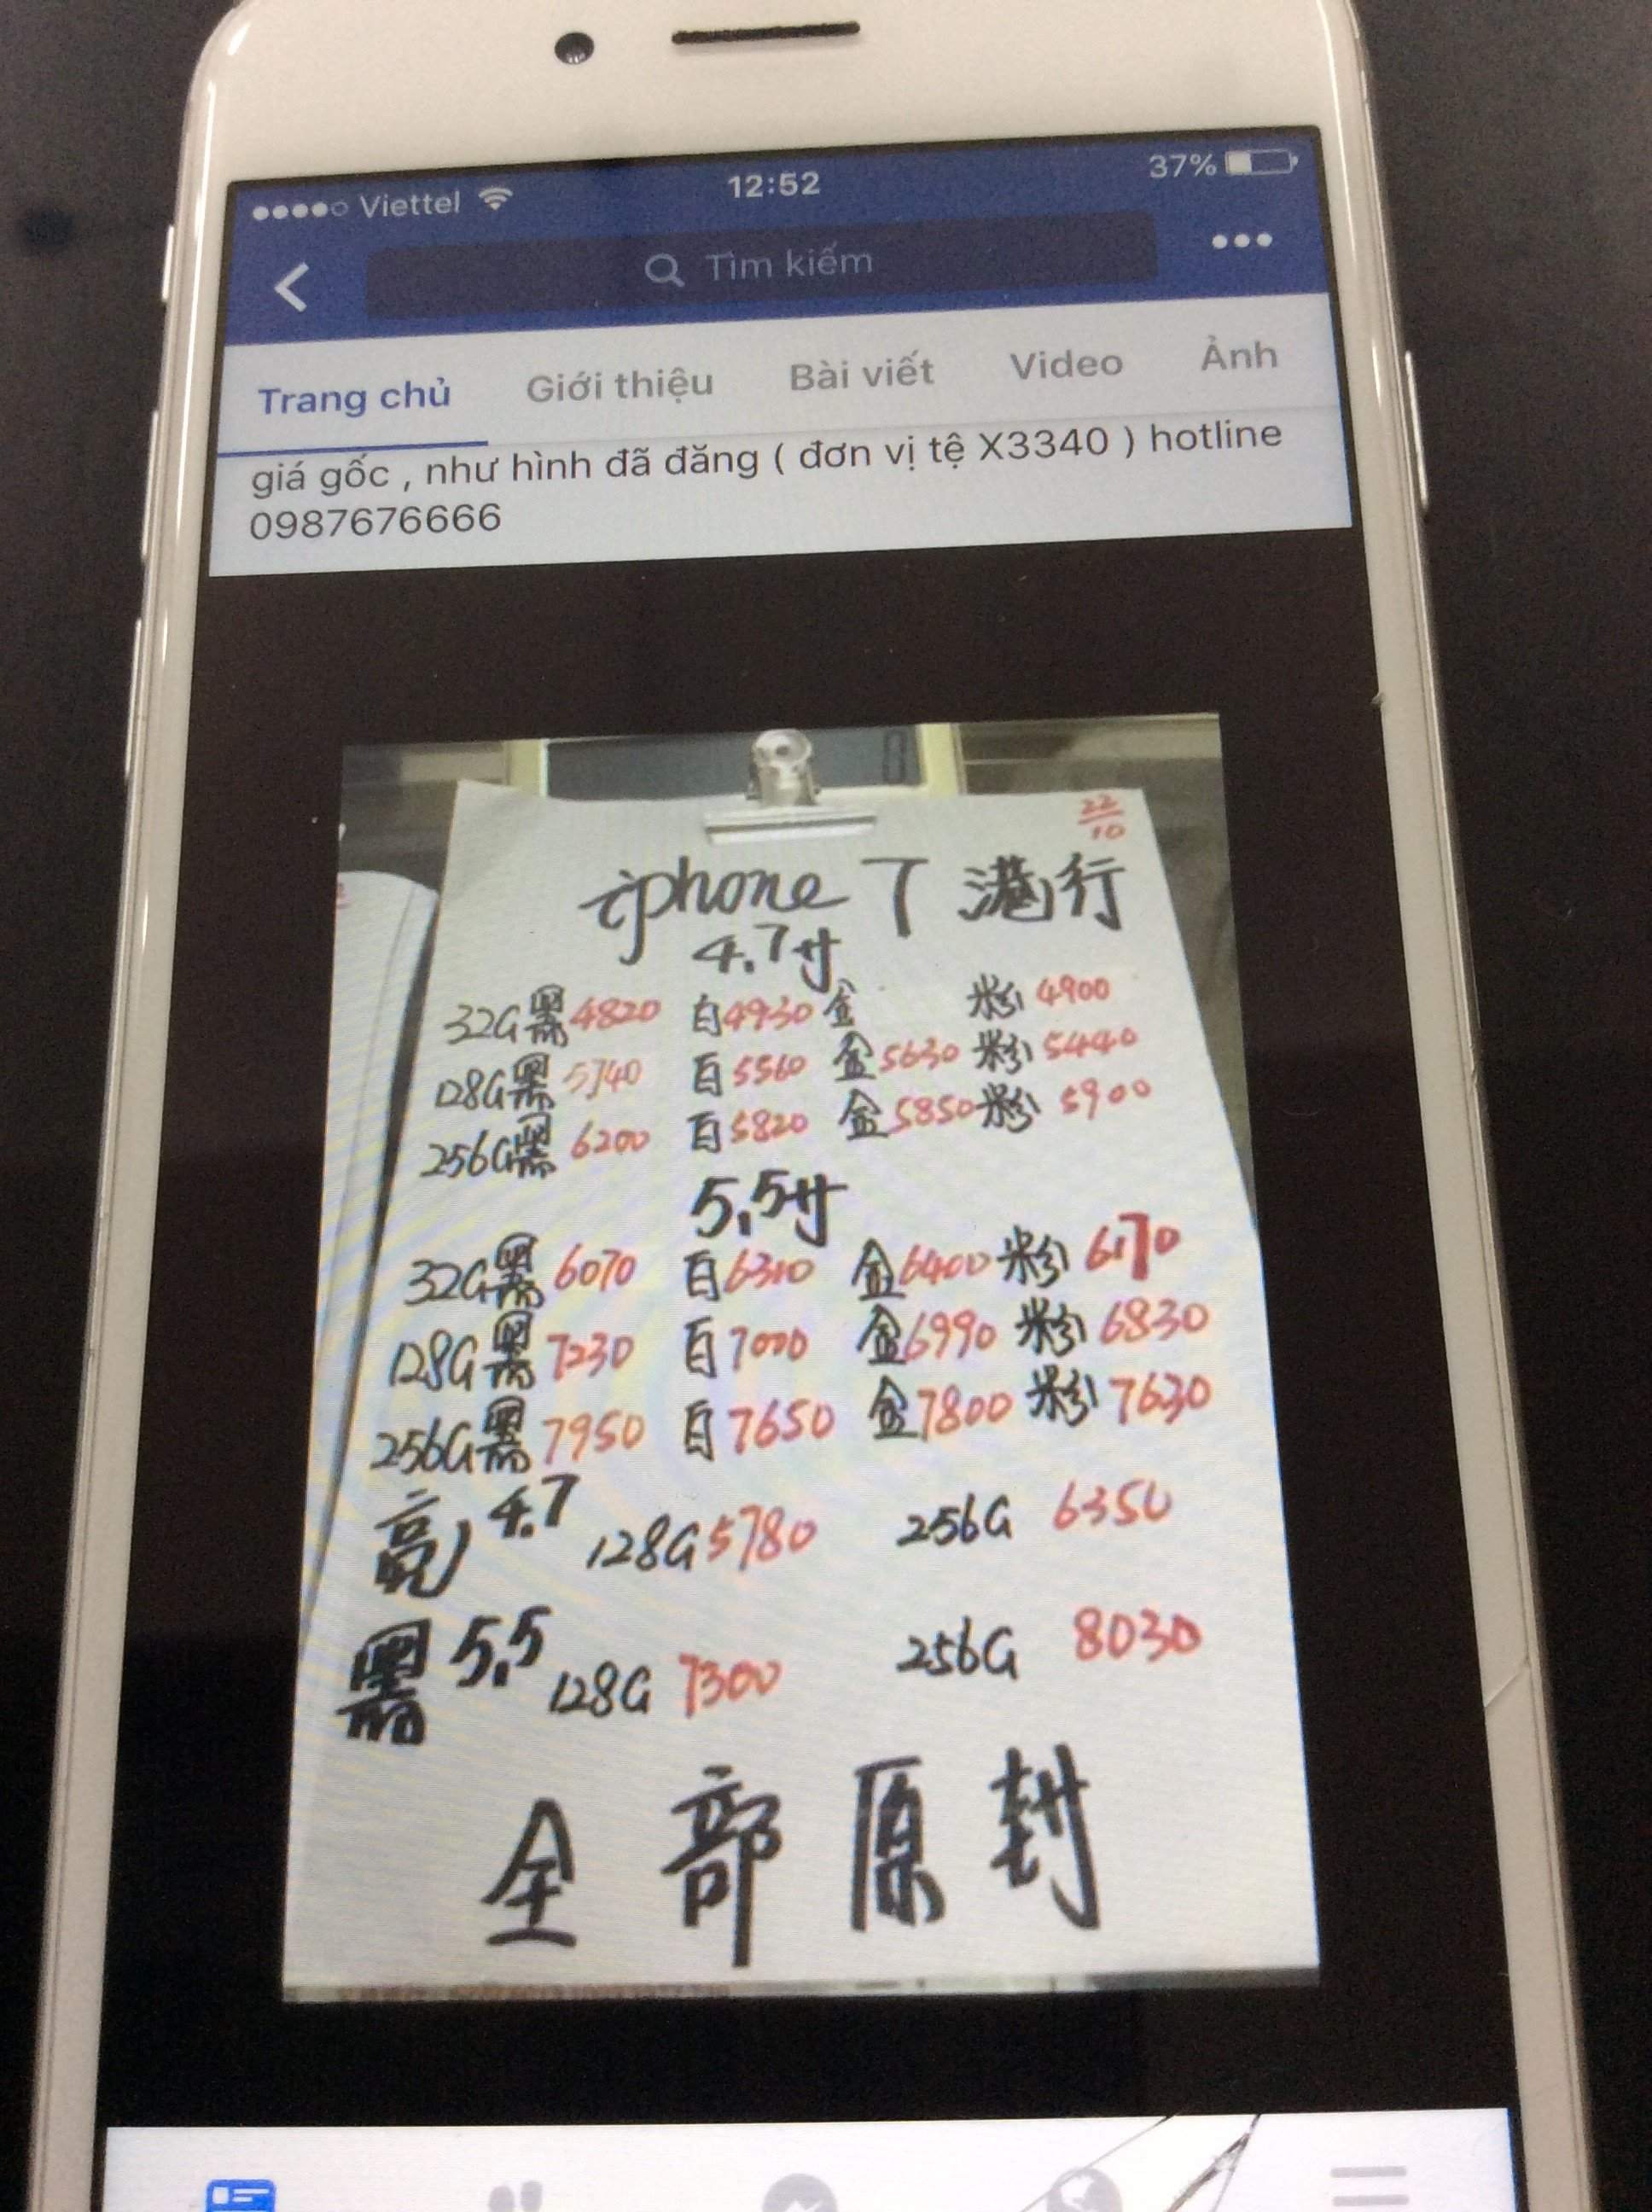 Viettel 12:52 37%
Tìm kiếm
Trang chủ Giới thiệu Bài viết Video Ảnh
giá gốc , như hình đã đăng ( đơn vị tệ X3340 ) hotline
0987676666
22/10
iphone 7 港行
4.7寸
32G黑4820 白4930 金 粉4900
128G黑5740 白5560 金5630 粉5440
256G黑6200 白5820 金5850 粉5900
5.5寸
32G黑6070 白6310 金6400 粉6170
128G黑7230 白7000 金6990 粉6830
256G黑7950 白7650 金7800 粉7630
亮 4.7 128G 5780 256G 6350
黑 5.5 128G 7300 256G 8030
全部原封